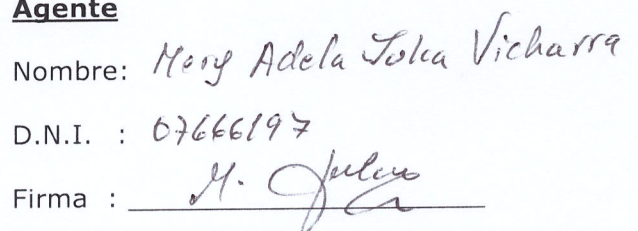 Agente
Nombre: Mery Adela Julca Vicharra
D.N.I. : 07666197
Firma : M. Julca